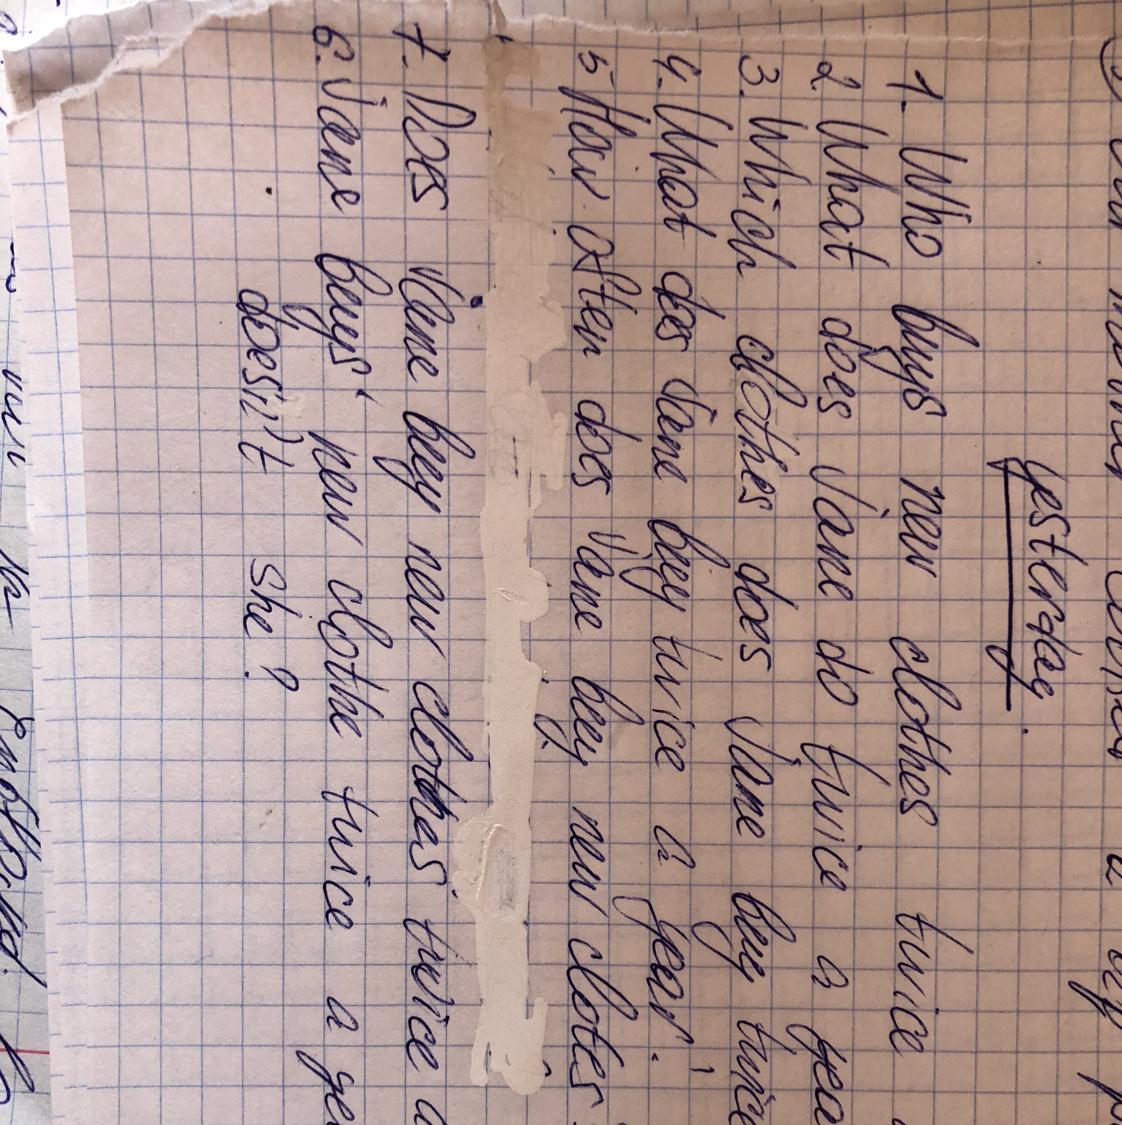 yesterday.
1. Who buys new clothes twice
2 What does Jane do twice a yea
3. Which clothes does Jane buy twice
4. What does Jane buy twice a year?
5 How often does Jane buy new clotes
7. Does Jane buy new clothes twice a
6. Jane buys new clothe twice a ye
doesn't she?